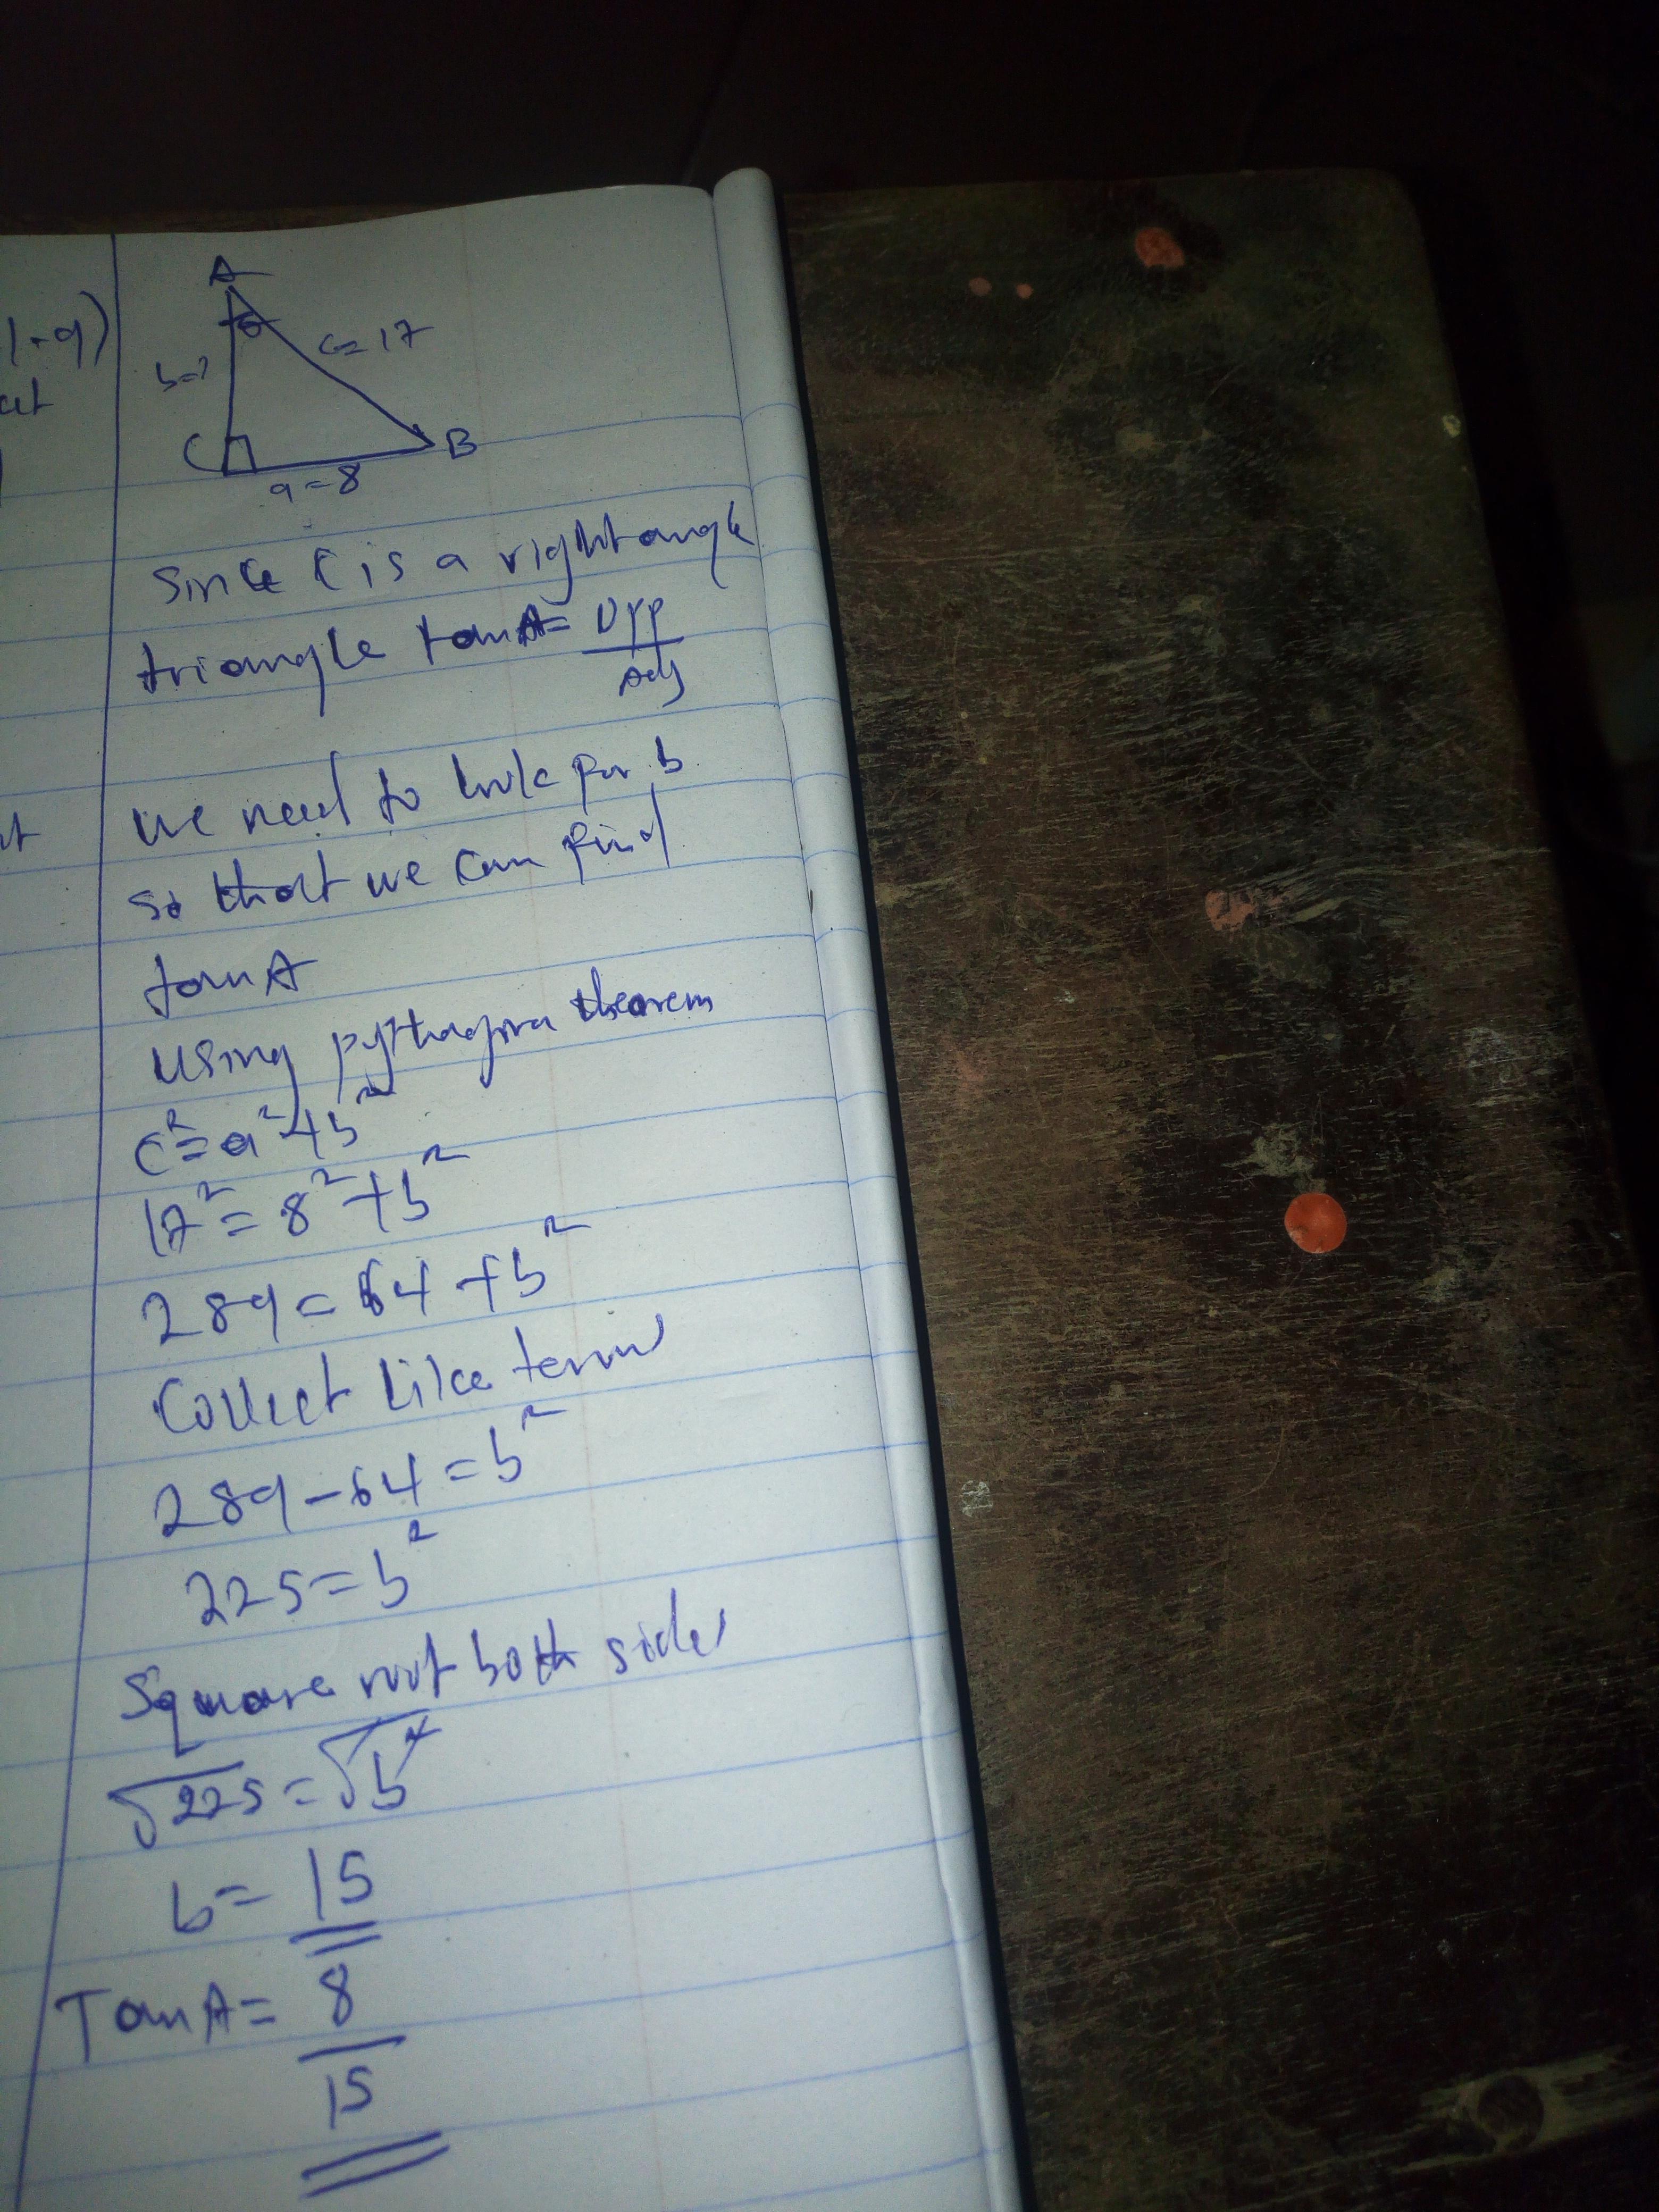 1.9)
A
c=17
b=?
C
B
a=8
Since C is a right angle
triangle tanA= Opp
Adj
We need to look for b
so that we can find
tanA
using pythagora theorem
c²=a²+b²
17²=8²+b²
289=64+b²
Collect Like term
289-64=b²
225=b²
Square root both sides
√225=√b²
b=15
TanA= 8
15